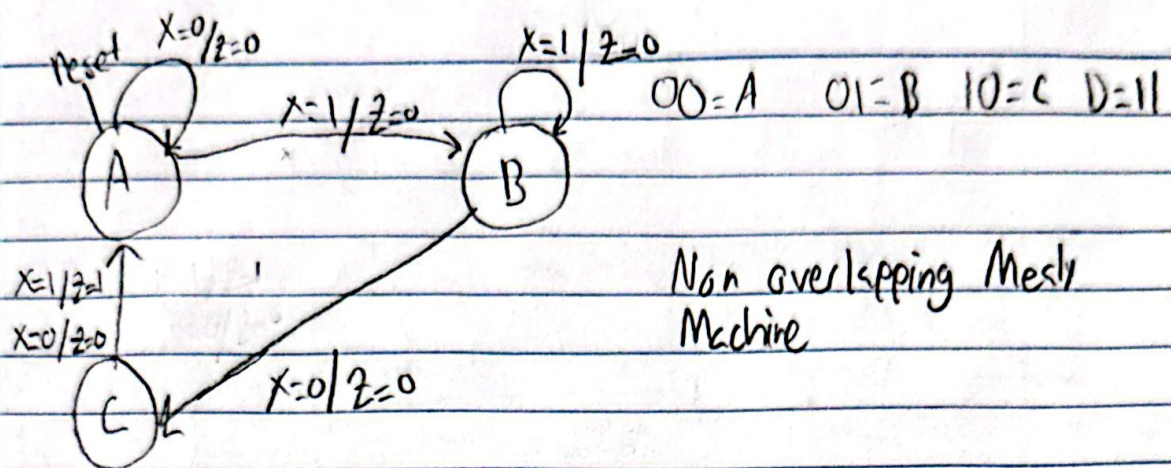 reset
X=0/Z=0
X=1/Z=0
X=1/Z=0
00=A 01=B 10=C D=11
A
B
X=1/Z=1
X=0/Z=0
Non overlapping Mealy
Machine
X=0/Z=0
C